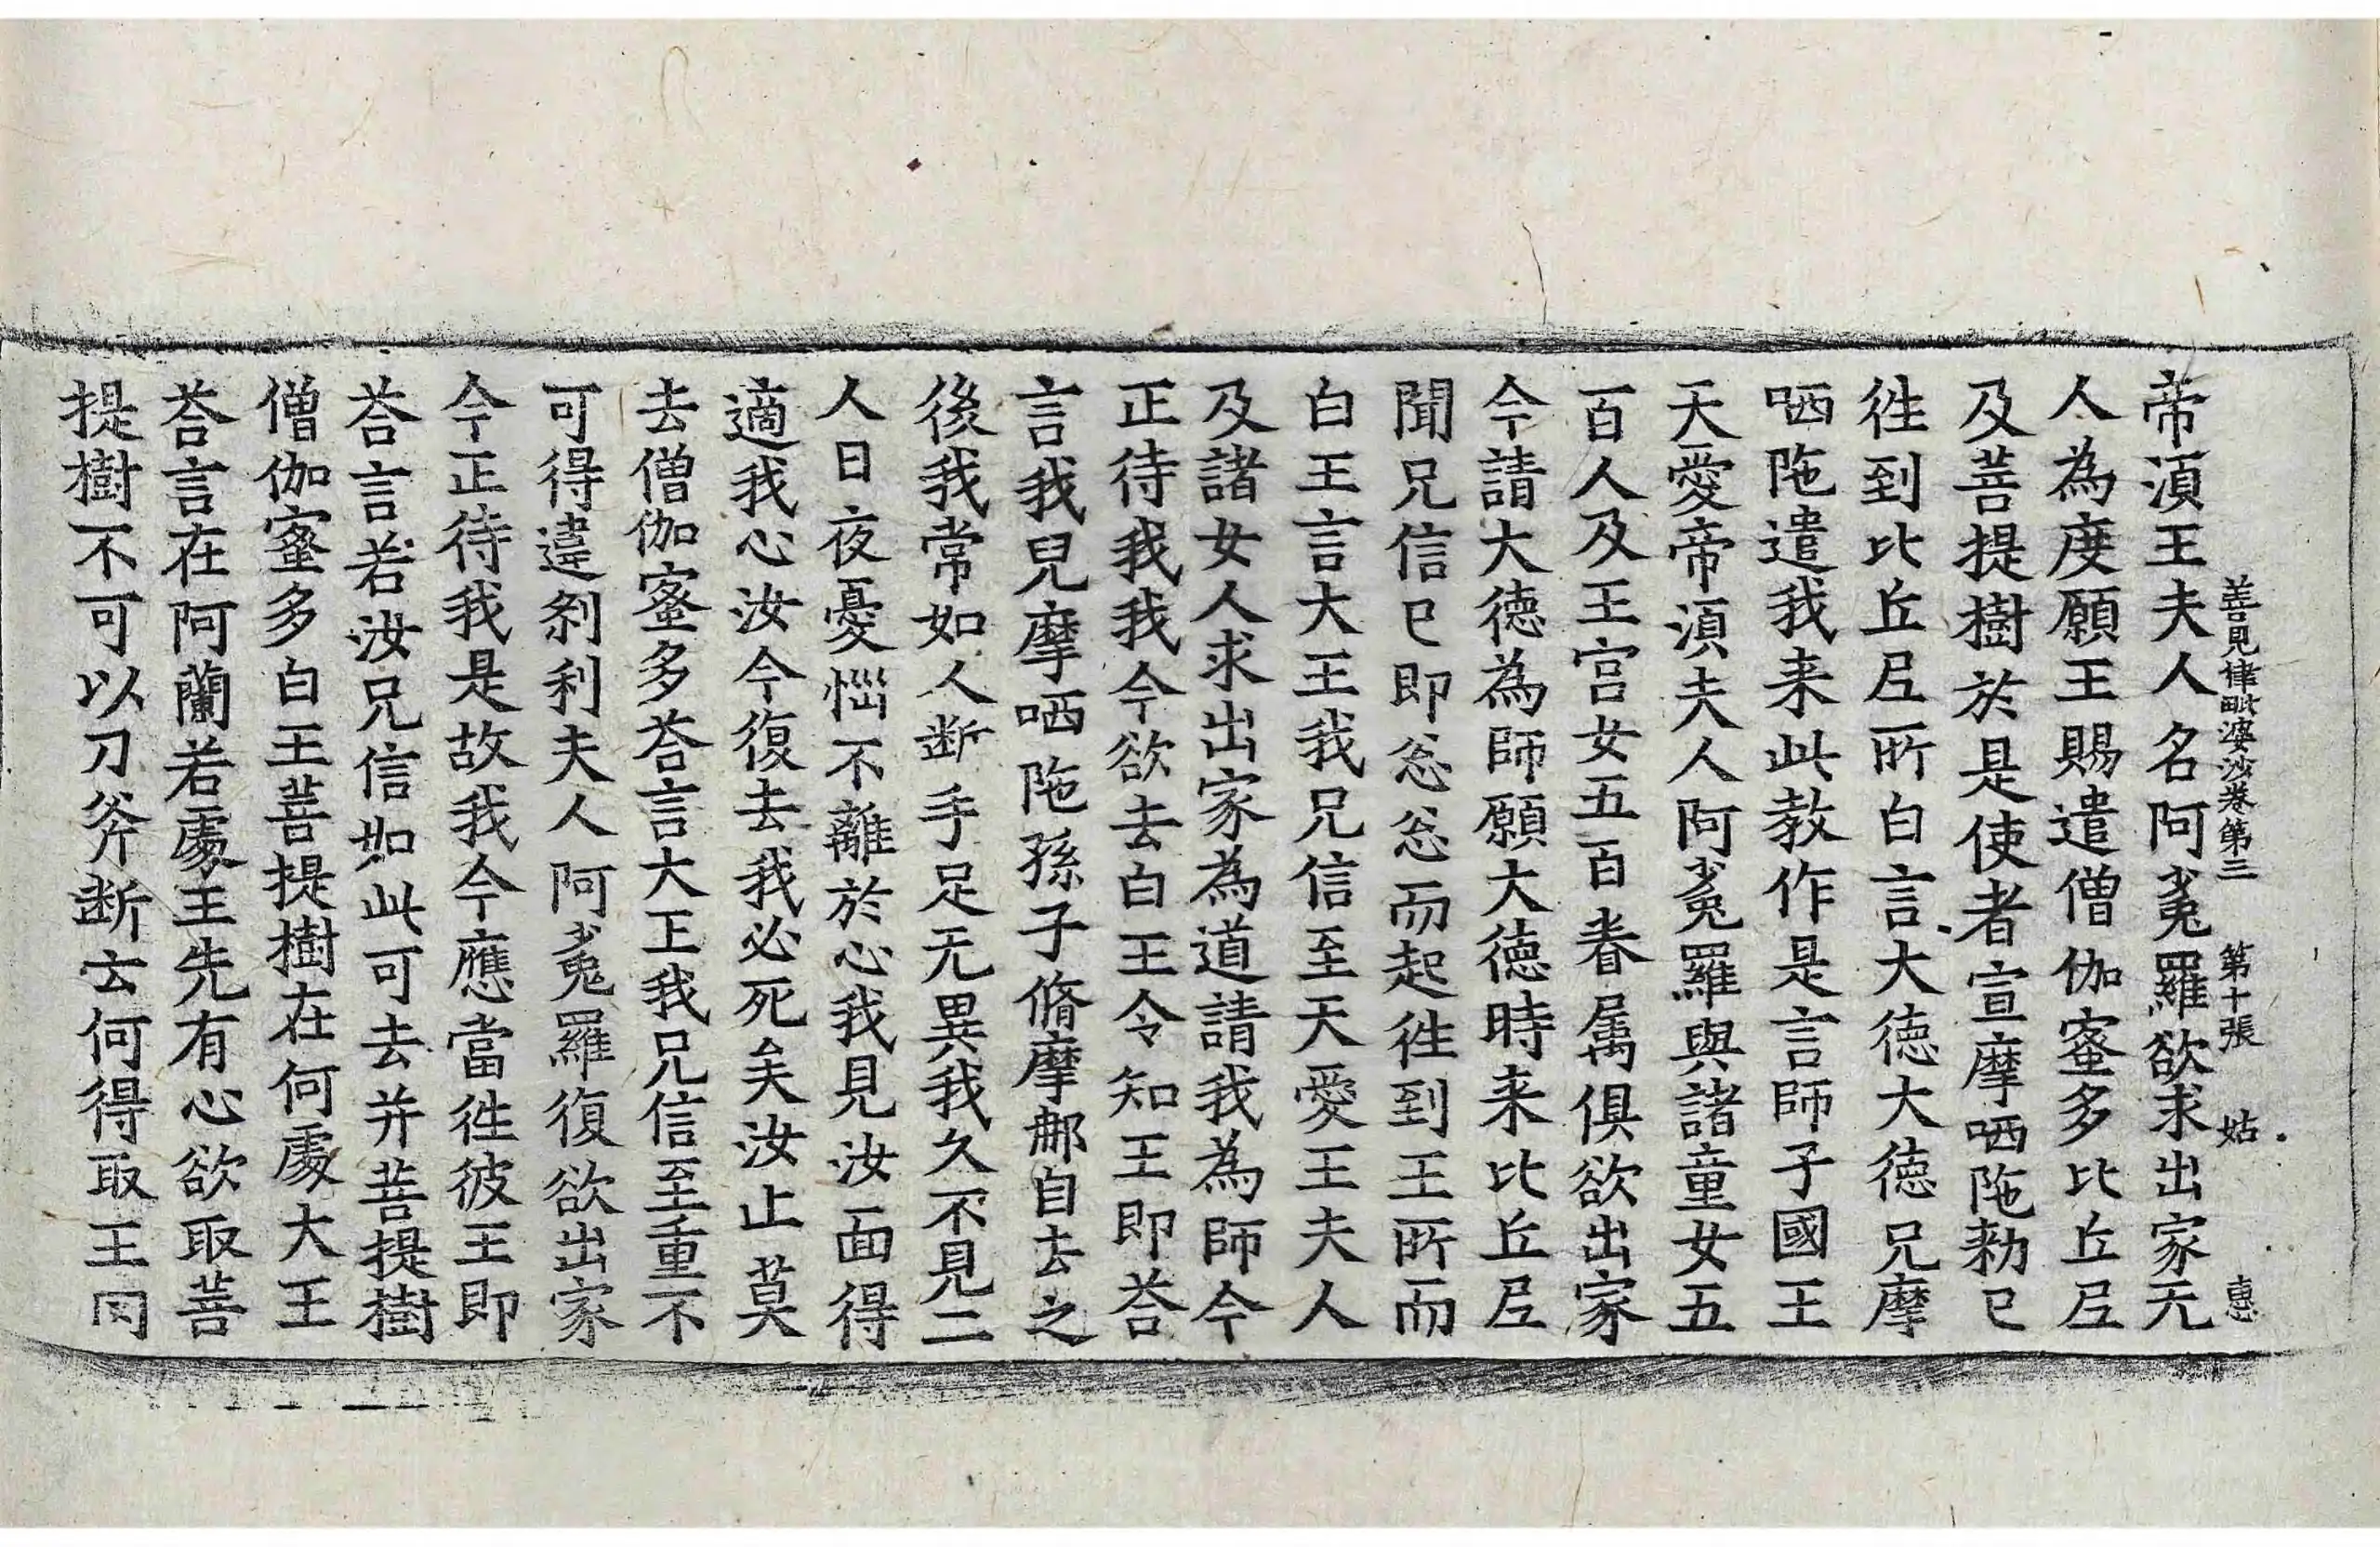 善見律毗婆沙卷第三　第十張　姑　惠
帝湏王夫人名阿㝹羅欲求出家无
人為度願王賜遣僧伽蜜多比丘尼
及菩提樹於是使者宣摩哂陁勑已
徃到比丘尼所白言大德大德兄摩
哂陁遣我来此教作是言師子國王
天愛帝湏夫人阿㝹羅與諸童女五
百人及王宫女五百眷属俱欲出家
今請大德為師願大德時来比丘尼
聞兄信已即忩忩而起徃到王所而
白王言大王我兄信至天愛王夫人
及諸女人求出家為道請我為師今
正待我我今欲去白王令知王即荅
言我兒摩哂陁孫子脩摩㲚自去之
後我常如人断手足无異我久不見二
人日夜憂惱不離於心我見汝面得
適我心汝今復去我必死矣汝止莫
去僧伽蜜多荅言大王我兄信至重不
可得違刹利夫人阿㝹羅復欲出家
今正待我是故我今應當徃彼王即
荅言若汝兄信如此可去并菩提樹
僧伽蜜多白王菩提樹在何處大王
荅言在阿蘭若處王先有心欲取菩
提樹不可以刀斧断云何得取王問